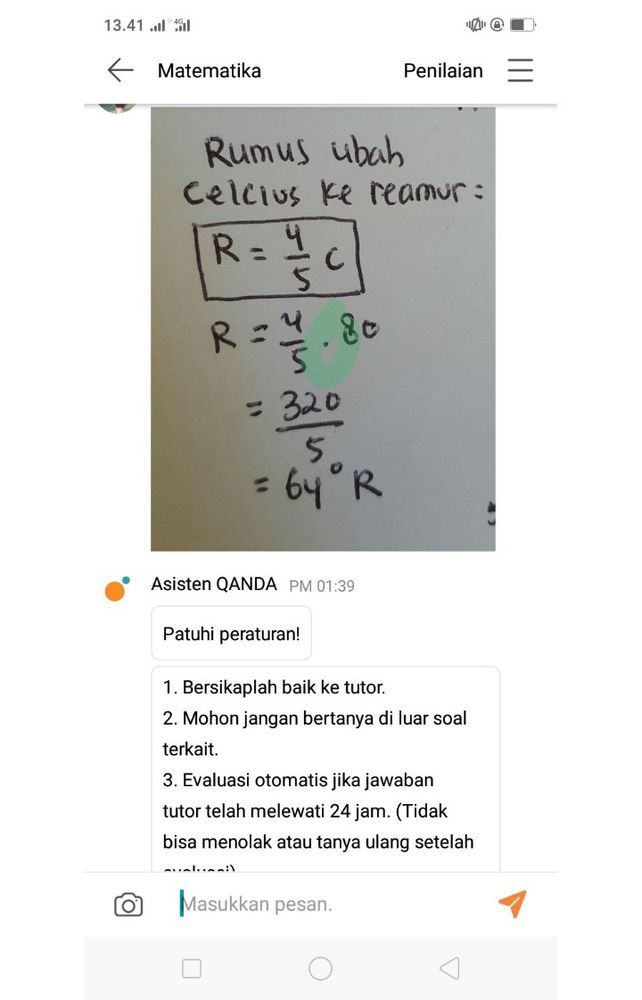 13.41
4G
Matematika Penilaian
Rumus ubah
Celcius ke reamur :
R = 4/5 C
R = 4/5 . 80
= 320/5
= 64° R
Asisten QANDA PM 01:39
Patuhi peraturan!
1. Bersikaplah baik ke tutor.
2. Mohon jangan bertanya di luar soal
terkait.
3. Evaluasi otomatis jika jawaban
tutor telah melewati 24 jam. (Tidak
bisa menolak atau tanya ulang setelah
Masukkan pesan.